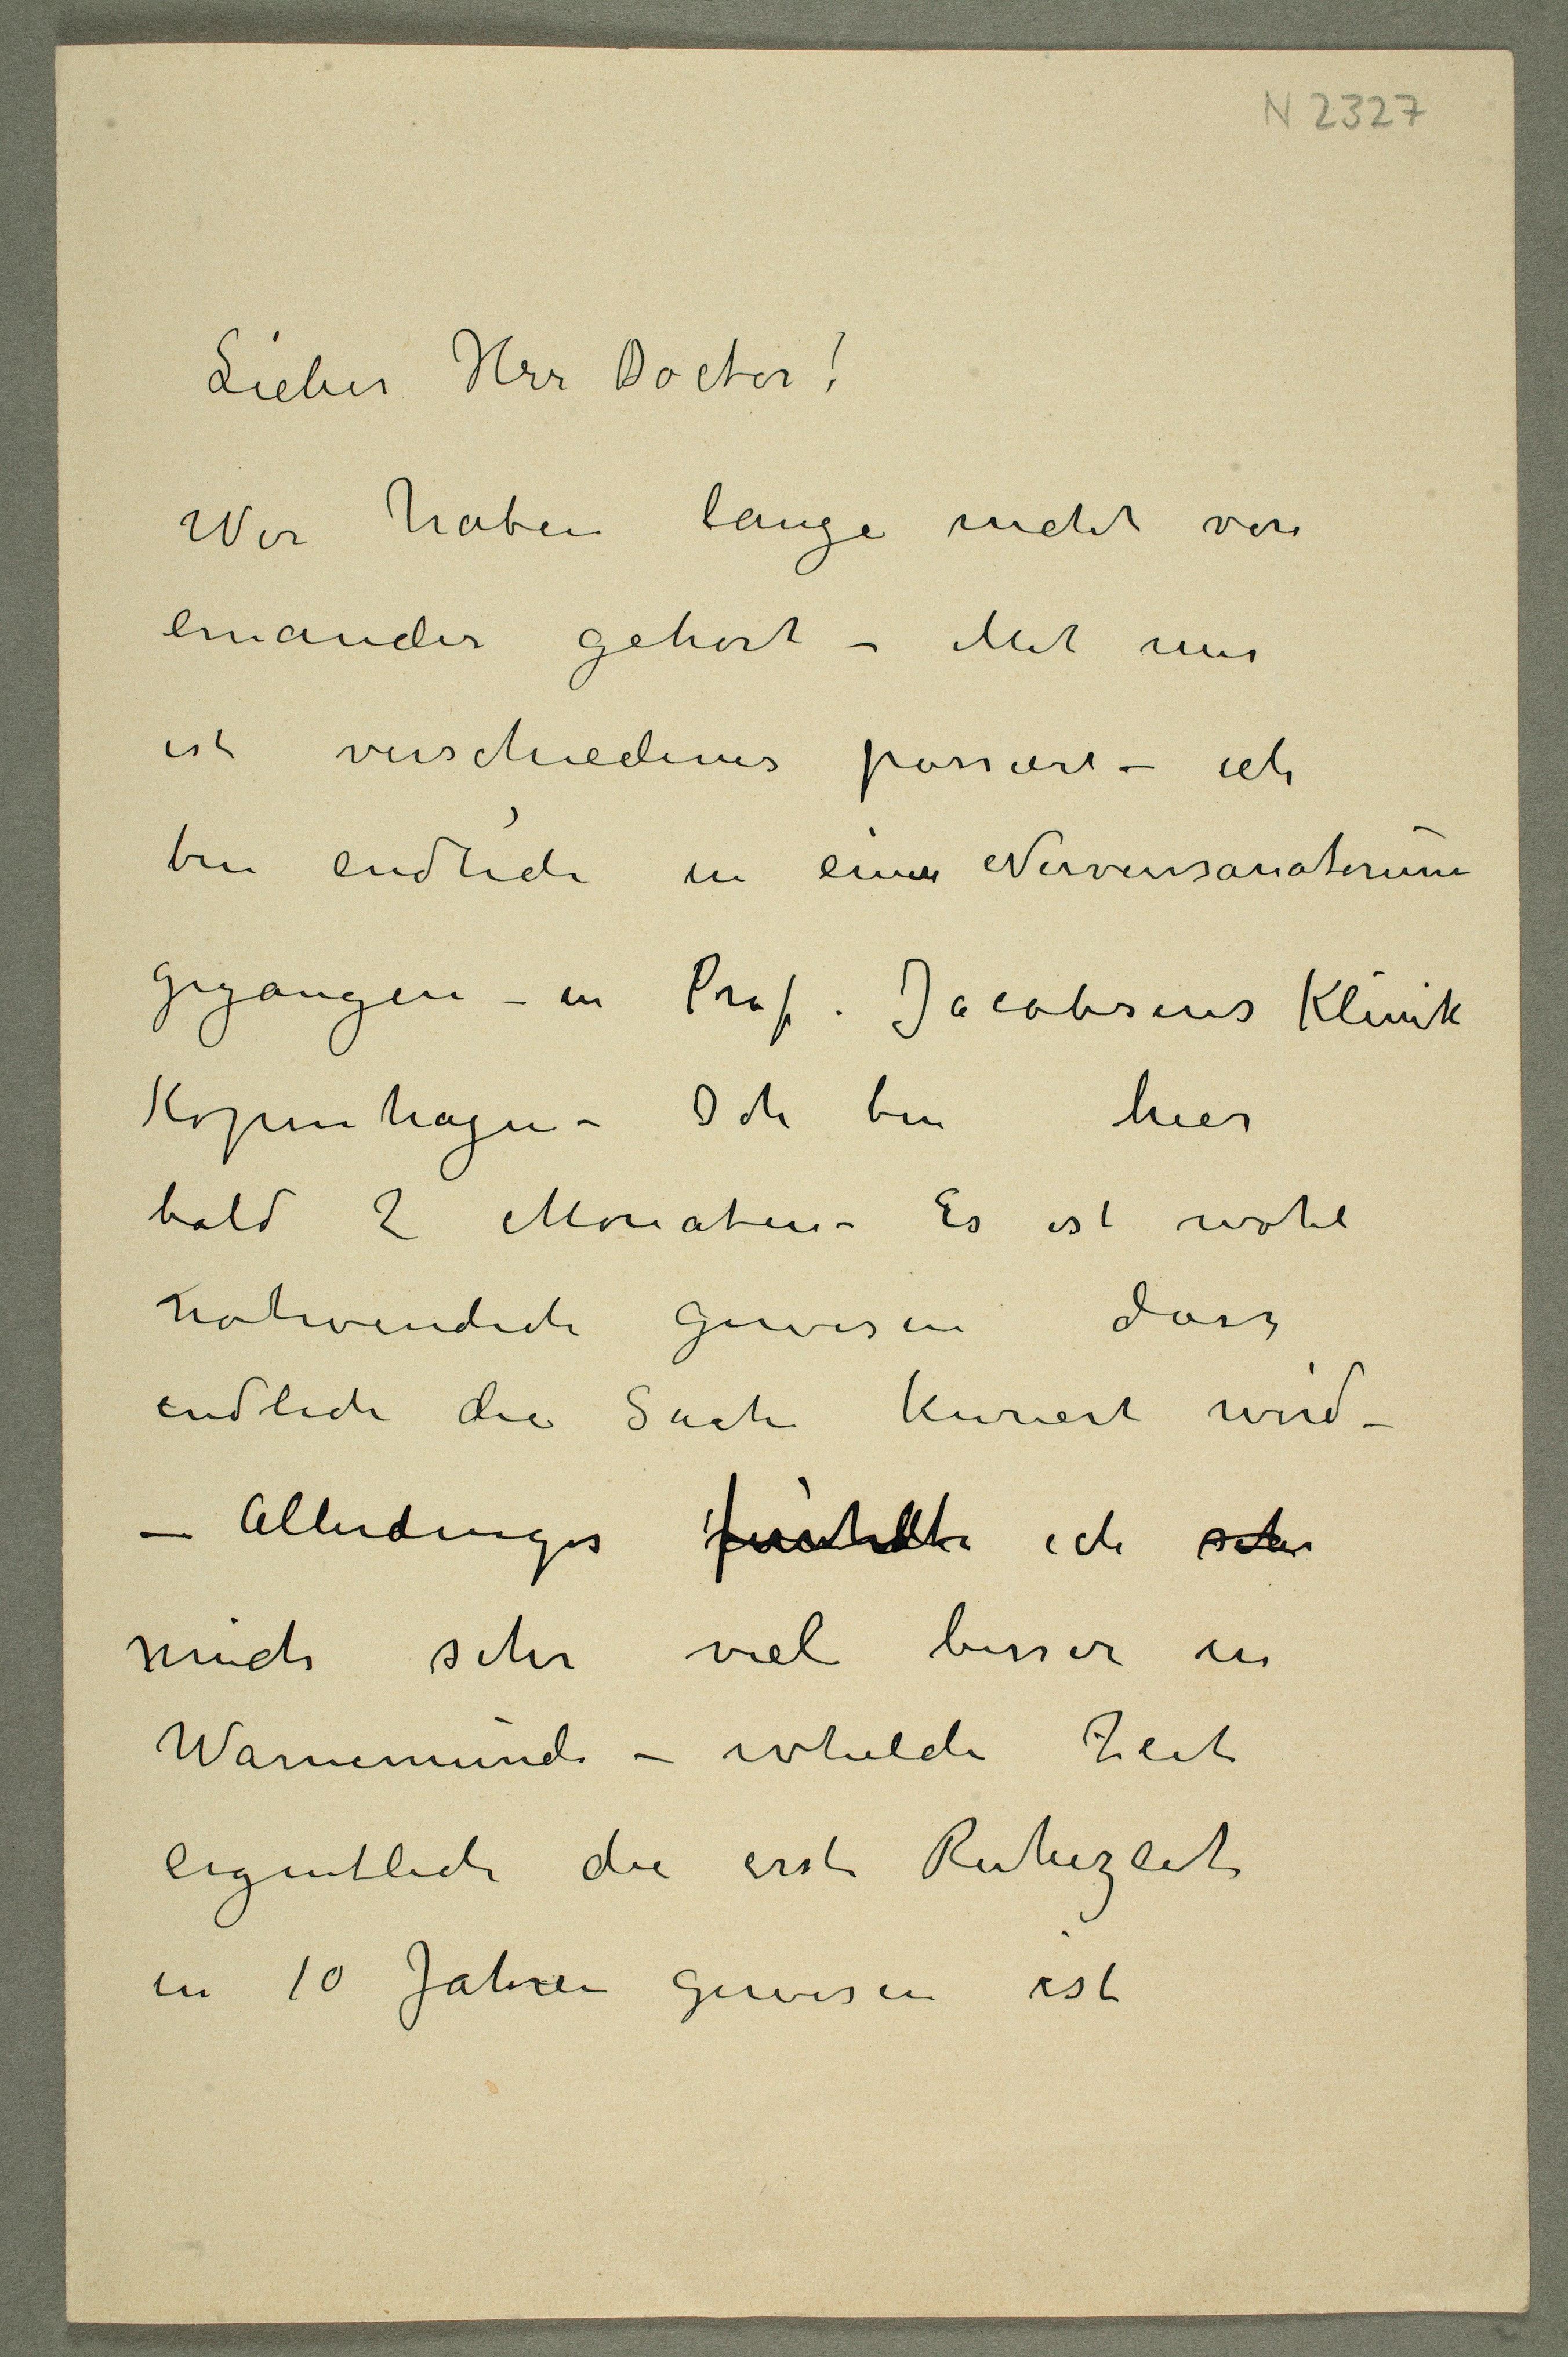 N 2327
Lieber Herr Doctor!
Wir haben lange nicht von
einander gehort – Mit mir
ist verschiedenes passiert – ich
bin endlich in einer Nervensanatorium
gegangen – in Prof. Jacobsens Klinik
Kopenhagen – Ich bin hier
bald 2 Monaten – Es ist wohl
nothwendich gewesen dasz
endlich die Sache kuriert wird –
– Allerdinges fühlte ich sehr
mich sehr viel besser in
Warnemünde – whelche Zeit
eigentlich die erste Ruhezeit
in 10 Jahren gewesen ist